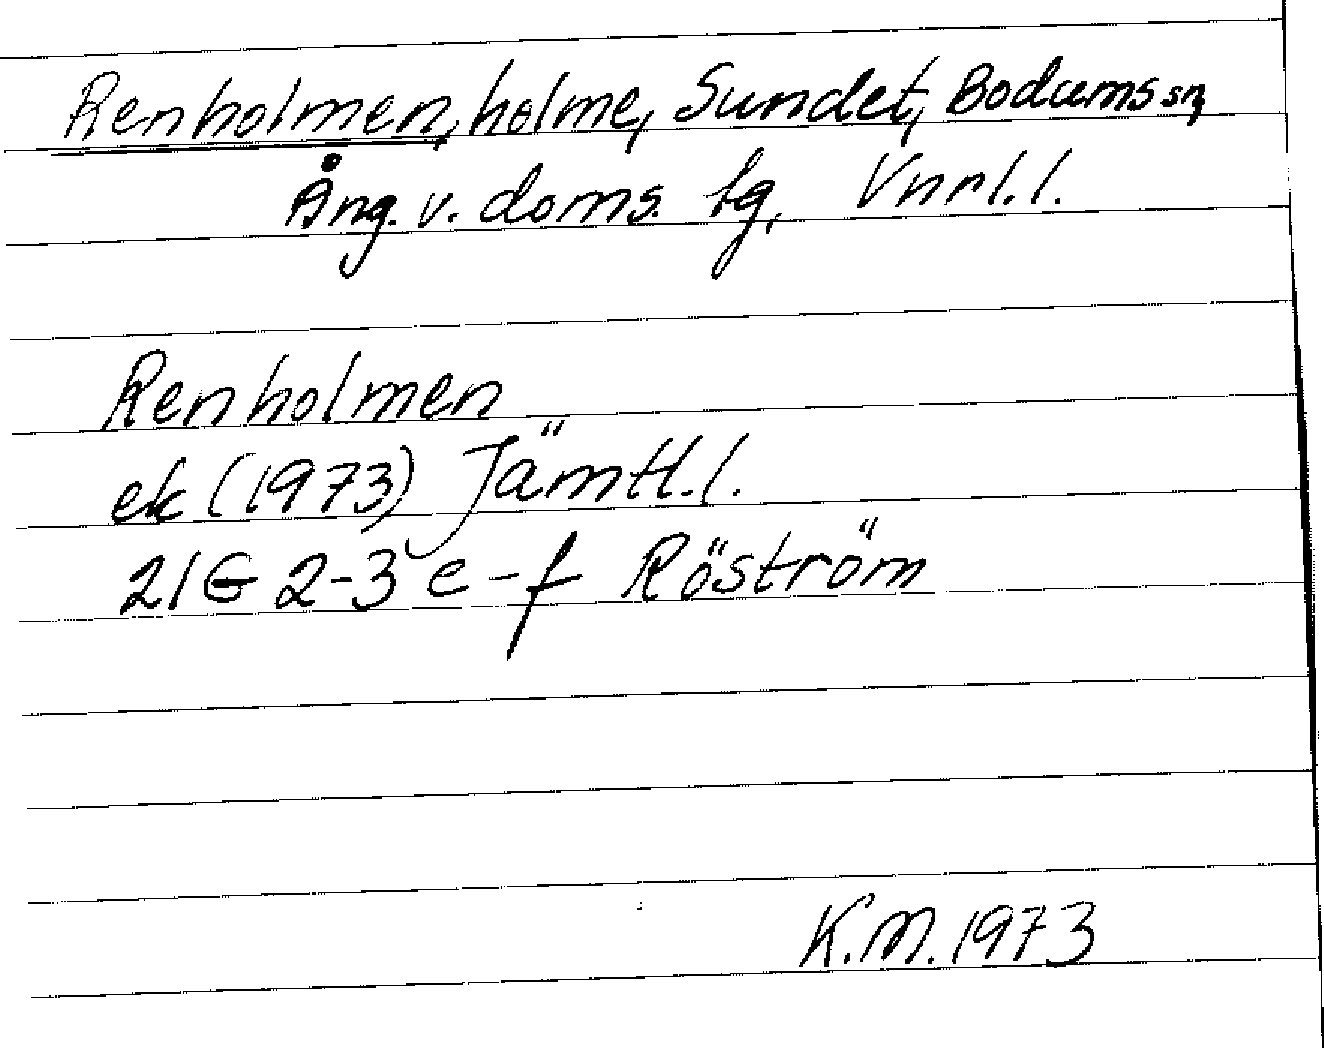 Renholmen, holme, Sundet, Bodums sn,
Ång. v. doms. tg, Vnrl. l.
Renholmen
ek (1973) Jämtl. l.
21G 2-3 e-f Röström
K.M. 1973